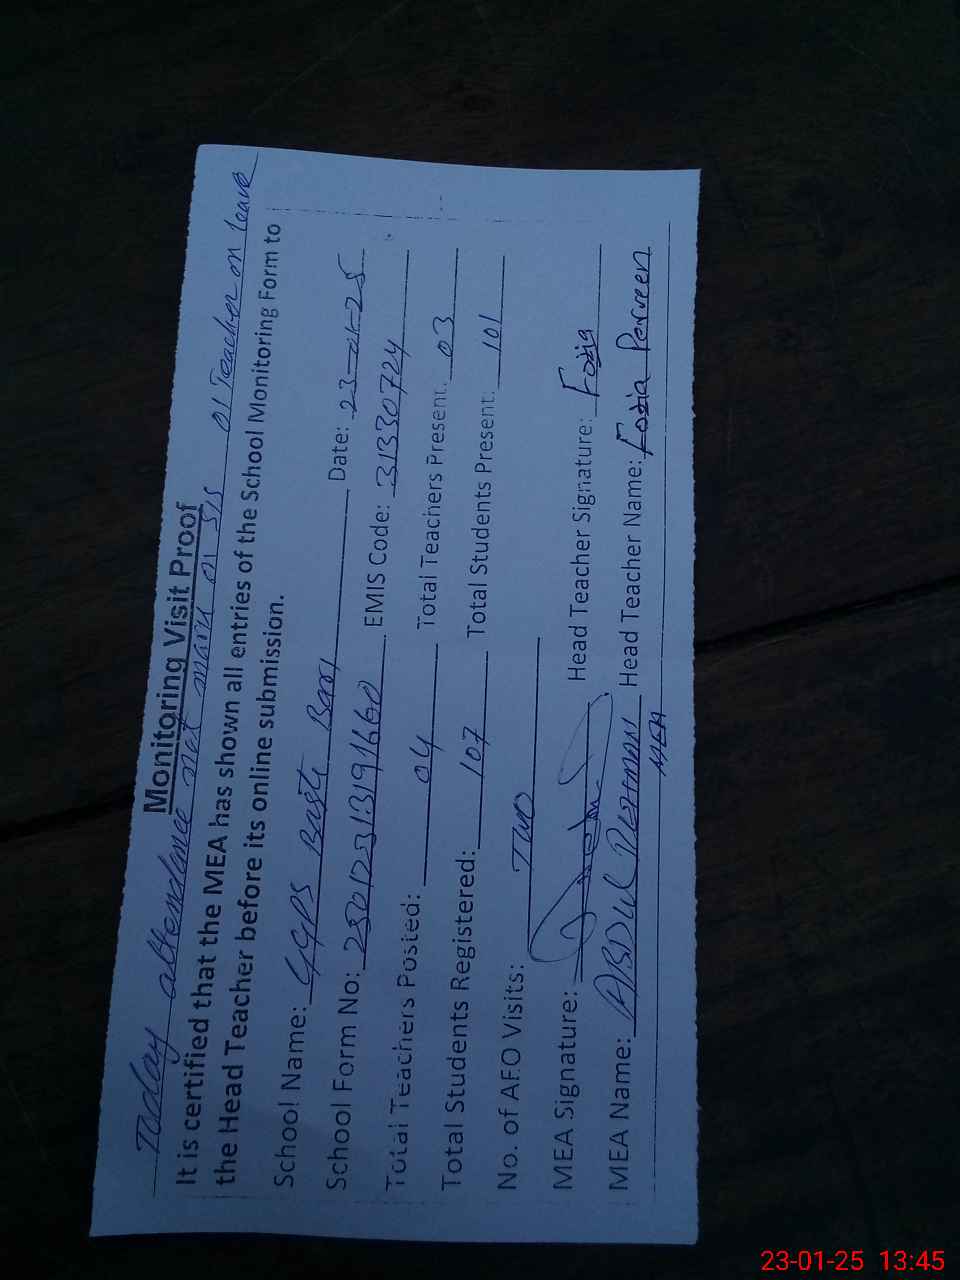 Monitoring Visit Proof
Today attendance not mark on SIS 01 Teacher on leave
It is certified that the MEA has shown all entries of the School Monitoring Form to
the Head Teacher before its online submission.
School Name: GGPS Basti Date: 23-01-25
School Form No: EMIS Code: 31330724
Total Teachers Posted: 04 Total Teachers Present: 03
Total Students Registered: 107 Total Students Present: 101
No. of AEO Visits: Two
MEA Signature: Head Teacher Signature: Fozia
MEA Name: ABDUL REHMAN Head Teacher Name: Fozia Parveen
MEA
23-01-25 13:45